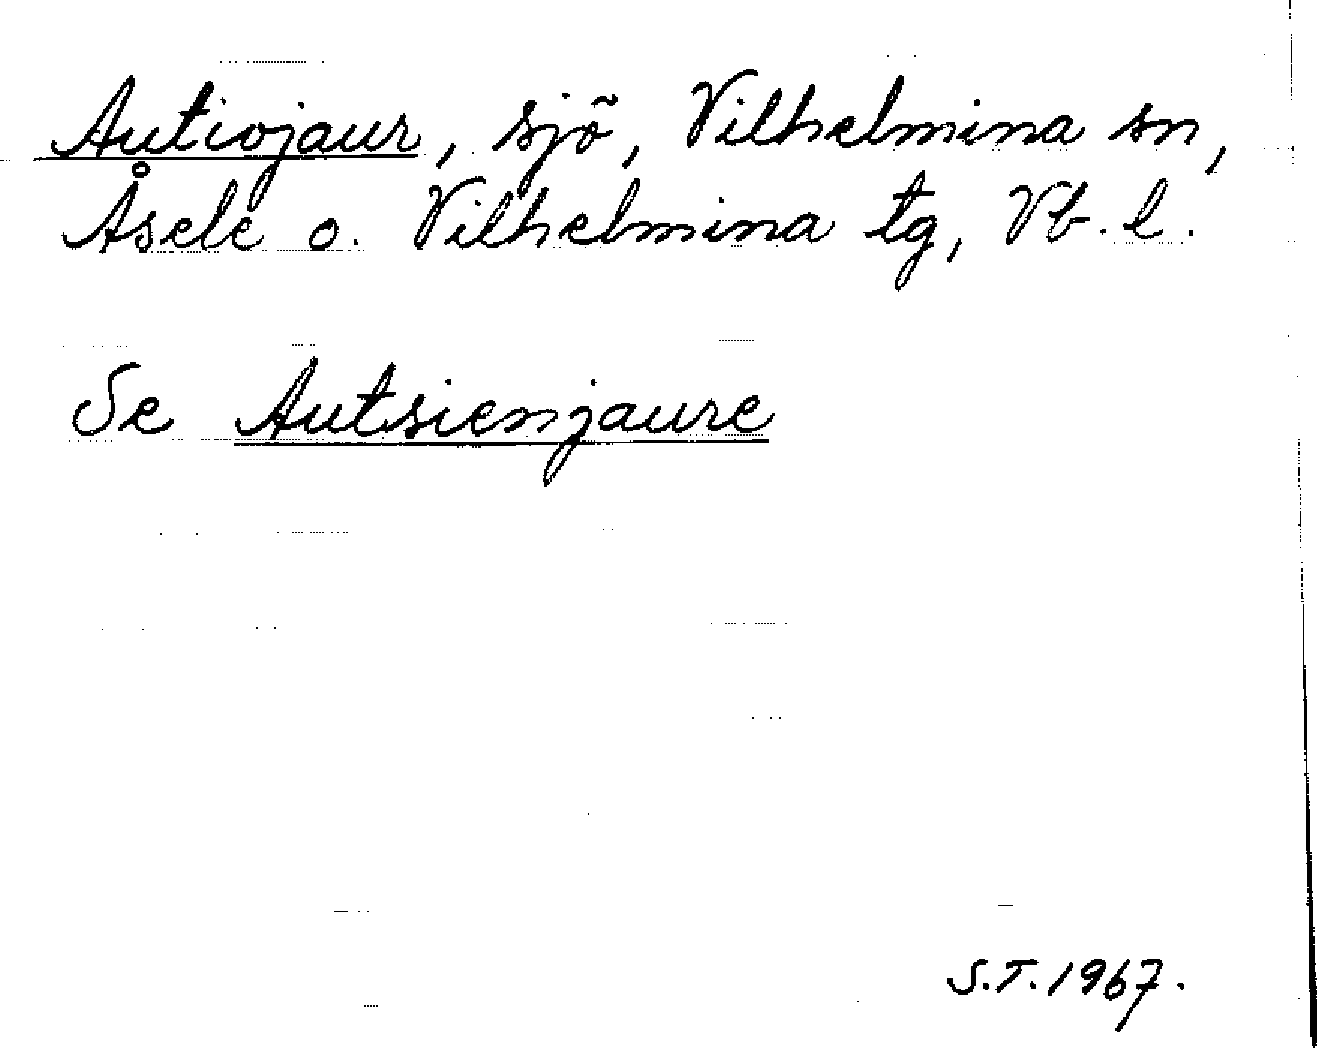 Autiojaur, sjö, Vilhelmina sn,
Åsele o. Vilhelmina tg, Vb. l.
Se Autsienjaure
S.T. 1967.